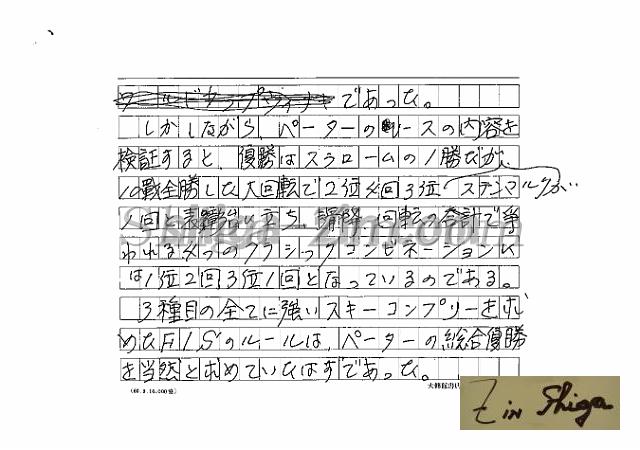 であった。
しかしながら、ペーターのレースの内容を
検証すると、優勝はスラロームの1勝だが、
10戦全勝した大回転で2位4回3位
ステンマルクが、
1回と表彰台に立ち、滑降、回転の合計で争
われる4つのクラシックコンビネーションで
は1位2回3位1回となっているのである。
3種目の全てに強いスキーコンプリーをもと
めたF.I.Sのルールは、ペーターの総合優勝
を当然と求めていたはずであった。
Shiga-Zin.com
Z in Shiga